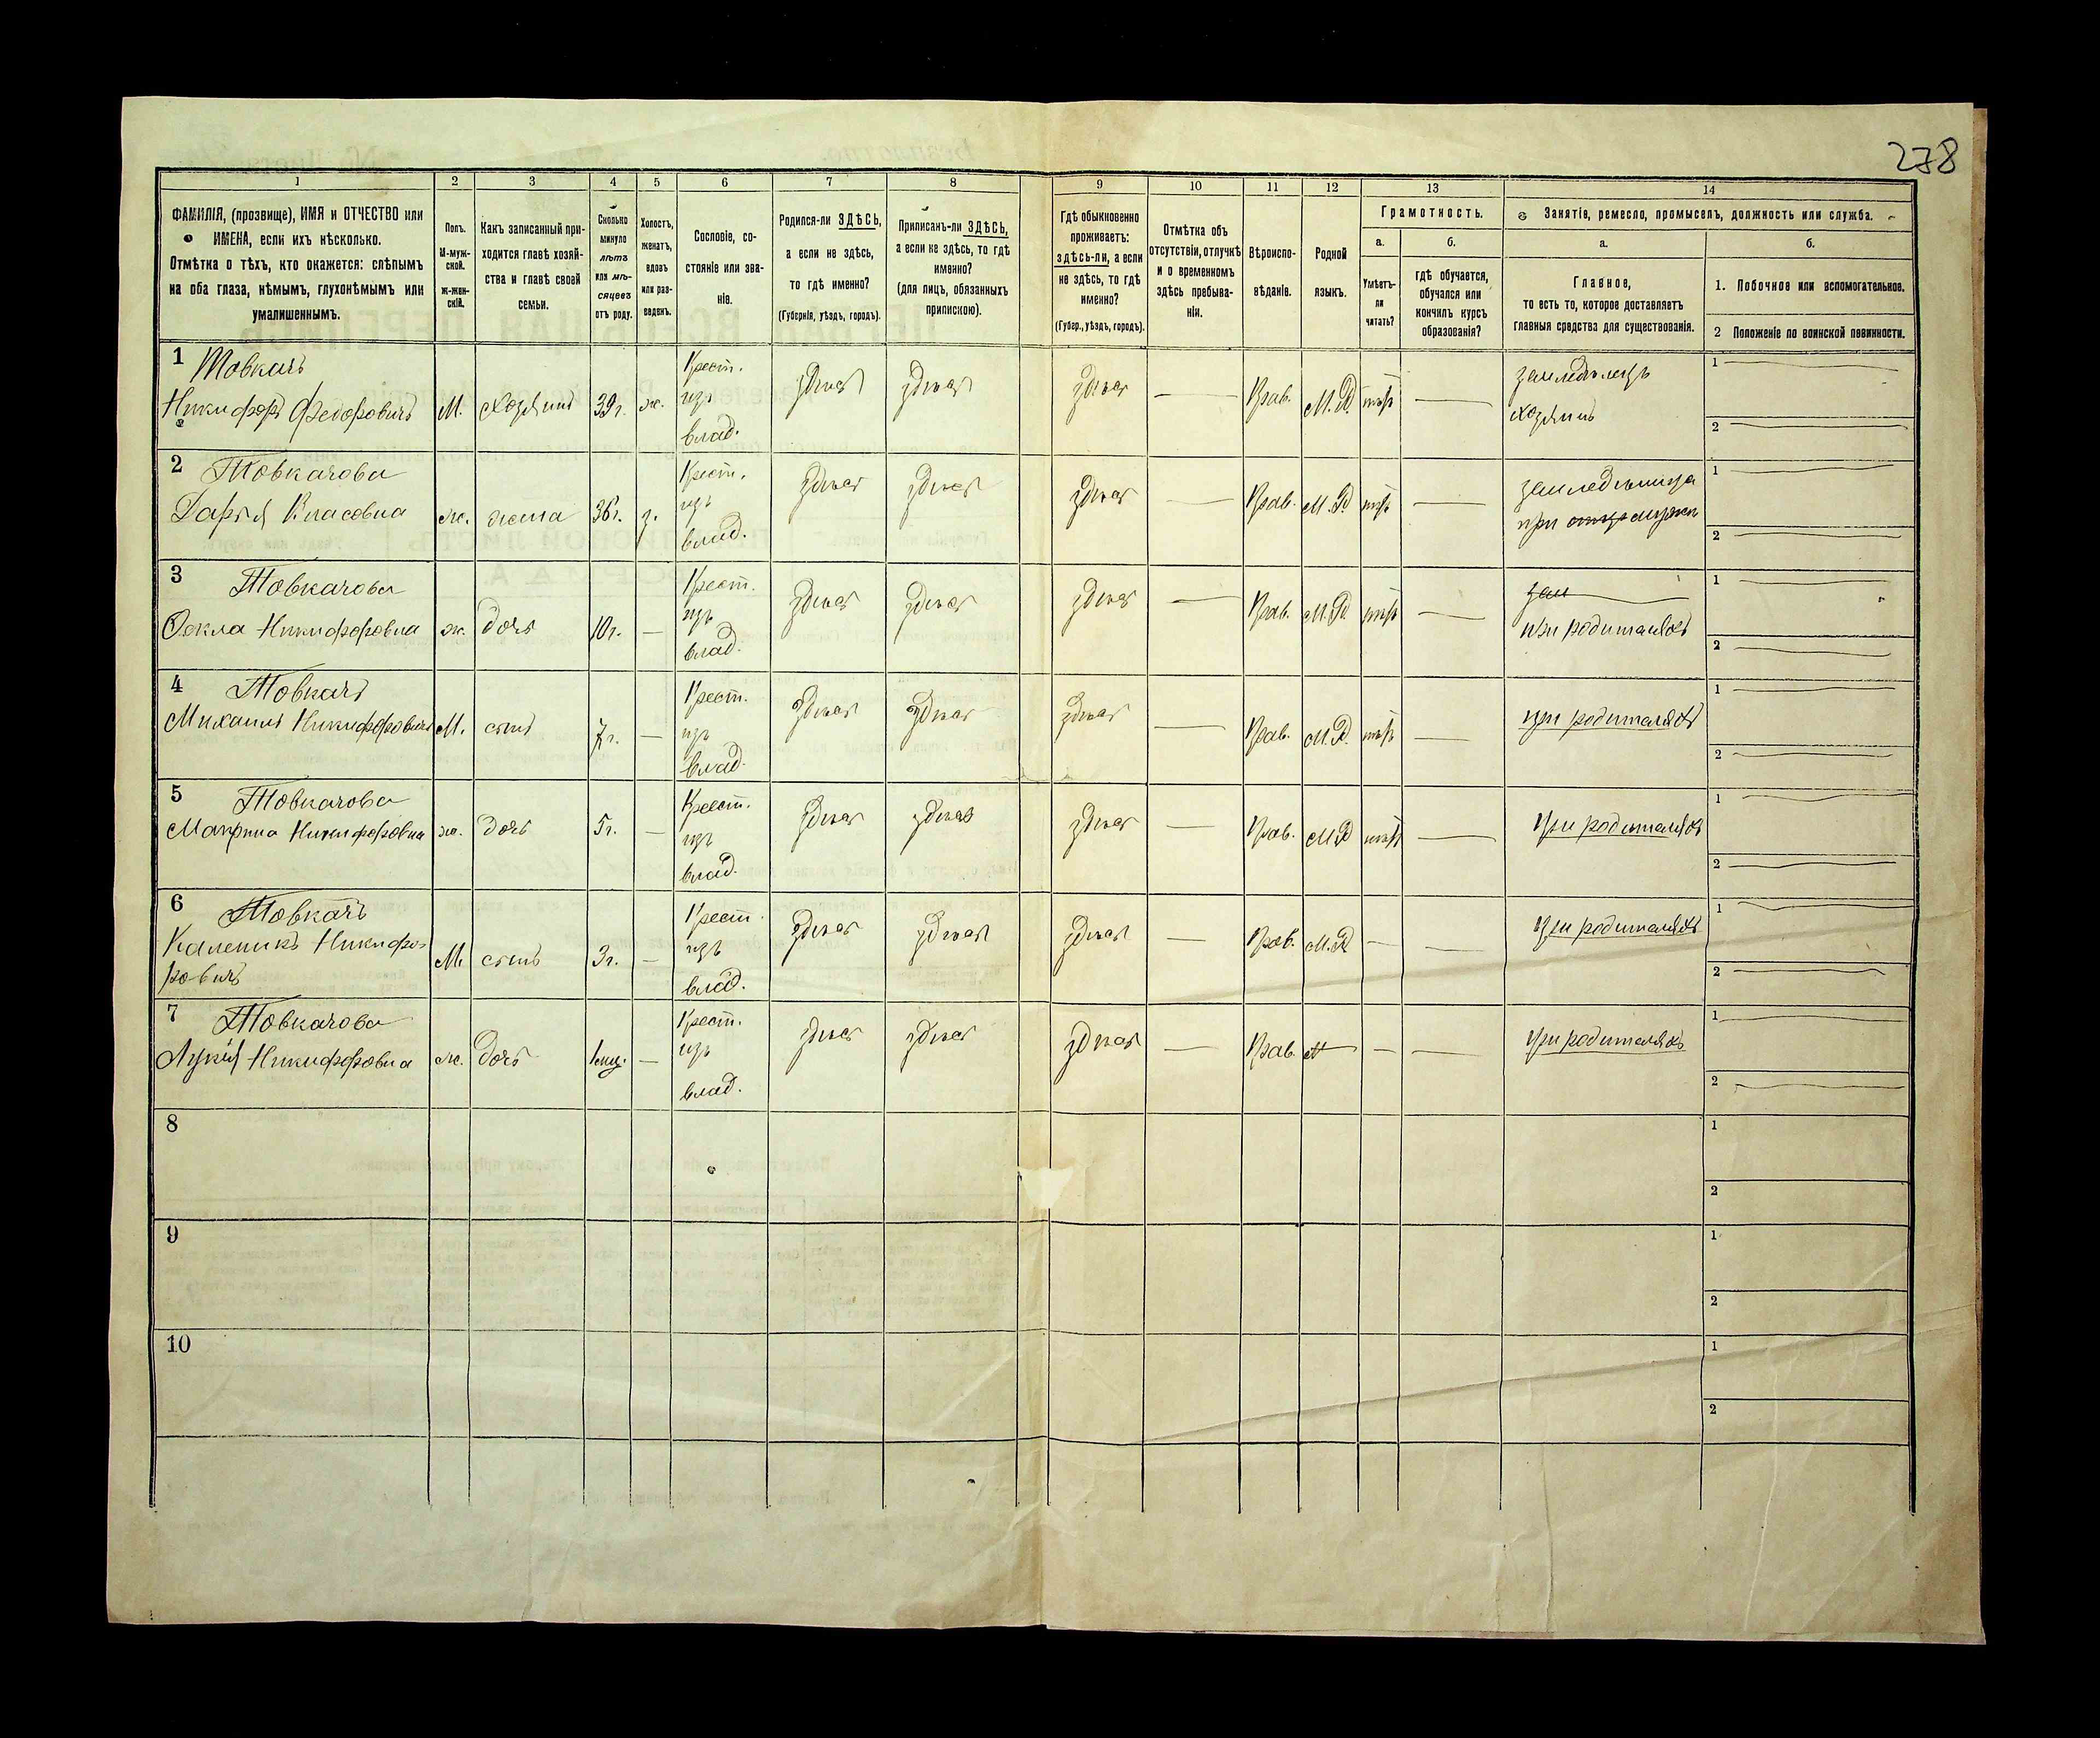 278
1 2 3 4 5 6 7 8 9 10 11 12 13 14
ФАМИЛІЯ, (прозвище), ИМЯ и ОТЧЕСТВО или
ИМЕНА, если ихъ нѣсколько.
Отмѣтка о тѣхъ, кто окажется: слѣпымъ
на оба глаза, нѣмымъ, глухонѣмымъ или
умалишеннымъ.
Полъ.
М-муж-
ской.
Ж-жен-
скій.
Какъ записанный при-
ходится главѣ хозяй-
ства и главѣ своей
семьи.
Сколько
минуло
лѣтъ
или мѣ-
сяцевъ
отъ роду.
Холостъ,
женатъ,
вдовъ
или раз-
веденъ.
Сословіе, со-
стояніе или зва-
ніе.
Родился-ли ЗДѢСЬ,
а если не здѣсь,
то гдѣ именно?
(Губернія, уѣздъ, городъ).
Приписанъ-ли ЗДѢСЬ,
а если не здѣсь, то гдѣ
именно?
(для лицъ, обязанныхъ
припискою).
Гдѣ обыкновенно
проживаетъ:
здѣсь-ли, а если
не здѣсь, то гдѣ
именно?
(Губер., уѣздъ, городъ).
Отмѣтка объ
отсутствіи, отлучкѣ
и о временномъ
здѣсь пребыва-
ніи.
Вѣроиспо-
вѣданіе.
Родной
языкъ.
Грамотность.
а. б.
Умѣетъ-
ли
читать?
гдѣ обучается,
обучался или
кончилъ курсъ
образованія?
Занятіе, ремесло, промыселъ, должность или служба.
а. б.
Главное,
то есть то, которое доставляетъ
главныя средства для существованія.
1. Побочное или вспомогательное.
2 Положеніе по воинской повинности.
1 Товкачъ
Никифоръ Федоровичъ М. Хозяинъ 39 г. ж. Крест. изъ влад. здѣсь здѣсь здѣсь — Прав. М.Р. нѣтъ — земледѣлецъ хозяинъ 1 — 2 —
2 Товкачова
Дарья Власовна ж. жена 36 г. з. Крест. изъ влад. здѣсь здѣсь здѣсь — Прав. М.Р. нѣтъ — при мужѣ 1 — 2 —
3 Товкачова
Фекла Никифоровна ж. дочь 10 г. — Крест. изъ влад. здѣсь здѣсь здѣсь — Прав. М.Р. нѣтъ — зем при родителяхъ 1 — 2 —
4 Товкачъ
Михаилъ Никифоровичъ М. сынъ 7 г. — Крест. изъ влад. здѣсь здѣсь здѣсь — Прав. М.Р. нѣтъ — при родителяхъ 1 — 2 —
5 Товкачова
Никифоровна ж. дочь 5 г. — Крест. изъ влад. здѣсь здѣсь здѣсь — Прав. М.Р. нѣтъ — при родителяхъ 1 — 2 —
6 Товкачъ
Каленикъ Никифо-
ровичъ М. сынъ 3 г. — Крест. изъ влад. здѣсь здѣсь здѣсь — Прав. М.Р. — — при родителяхъ 1 — 2 —
7 Товкачова
Лукія Никифоровна ж. дочь — Крест. изъ влад. здѣсь здѣсь здѣсь — Прав. — — — при родителяхъ 1 — 2 —
8 1 2
9 1 2
10 1 2